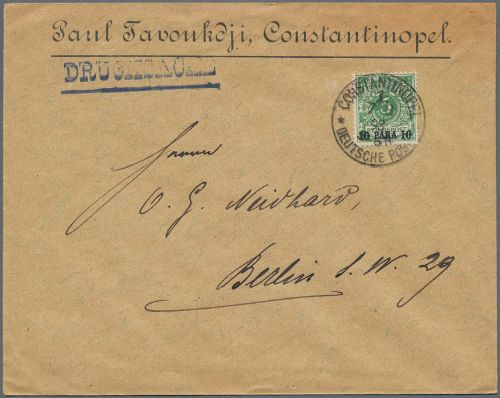 Paul Tavoukdji, Constantinopel.
DRUCKSACHE
CONSTANTINOPEL
* DEUTSCHE POST
10 PARA 10
Herrn
O. G. Neidhard,
Berlin S. W. 29